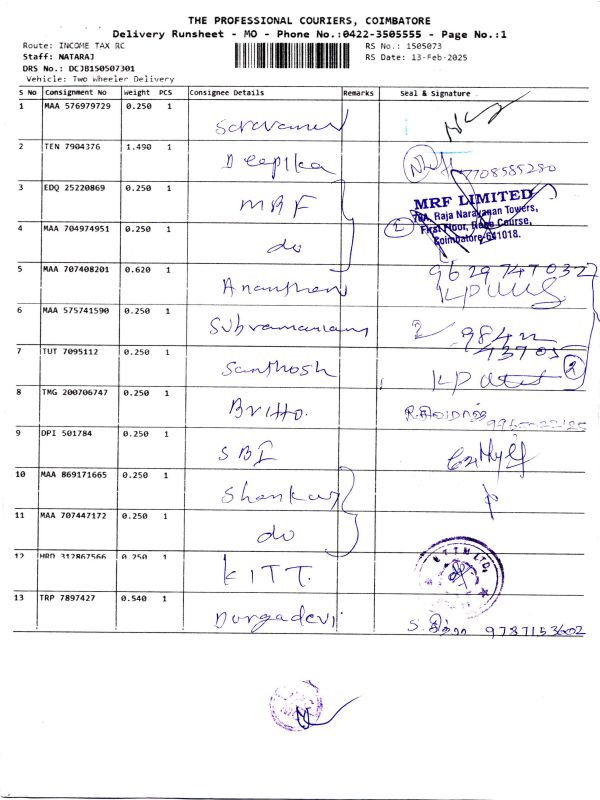 THE PROFESSIONAL COURIERS, COIMBATORE
Delivery Runsheet - MO - Phone No.:0422-3505555 - Page No.:1
Route: INCOME TAX RC
RS No.: 1505073
Staff: NATARAJ
RS Date: 13-Feb-2025
DRS No.: DCJB150507301
Vehicle: Two Wheeler Delivery
S No Consignment No Weight PCS Consignee Details Remarks Seal & Signature
1 MAA 576979729 0.250 1
2 TEN 7904376 1.490 1 Deepika 7708585280
3 EDQ 25220869 0.250 1 MRF
MRF LIMITED
70A, Raja Narayanan Towers,
First Floor, Race Course,
Coimbatore-641018.
4 MAA 704974951 0.250 1 do 2
5 MAA 707408201 0.620 1 9629747032
6 MAA 575741590 0.250 1 Subramaniam 2 9842
43705
7 TUT 7095112 0.250 1 Santhosh 2
8 TMG 200706747 0.250 1 Britto.
9 DPI 501784 0.250 1 SBI
10 MAA 869171665 0.250 1 Shankar
11 MAA 707447172 0.250 1 do
12 HRD 312867566 0.250 1 KITT.
13 TRP 7897427 0.540 1 Durgadevi 9787153602